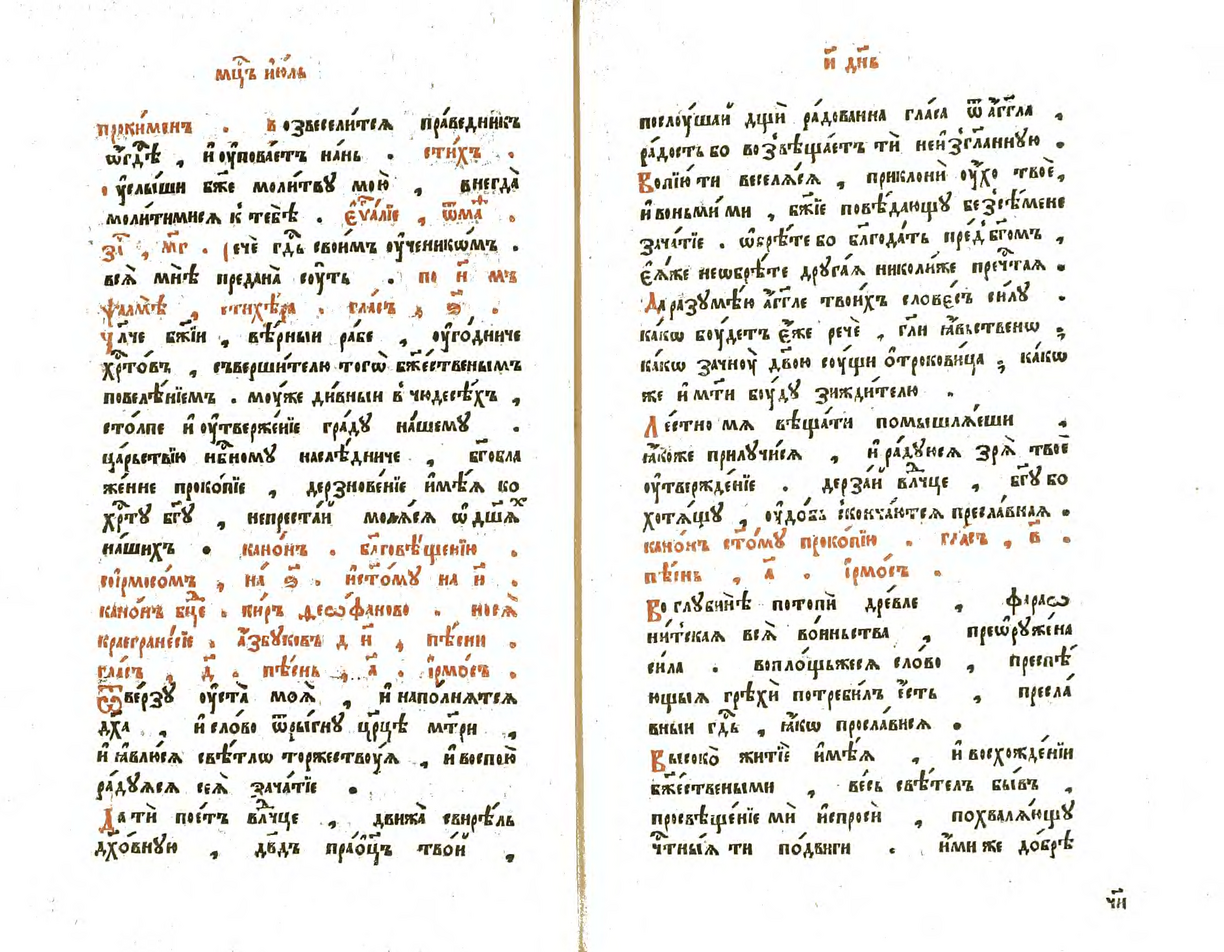 мц҃ъ їю́ль
проки́менъ . возвесели́тся пра́ведникъ
ѡ҆гд҃ѣ , и҆ оу҆пова́етъ на́нь . сти́хъ .
оу҆слы́ши бж҃е моли́тву мою̀ , внегда̀
моли́тимися к тебѣ̀ . є҆ѵⷢ҇а́лїе , ѿ маⷴ .
з҃і , мг҃ . речѐ гдⷭ҇ь свои́мъ оу҆ченикѡ́мъ .
вся̀ мнѣ̀ предана̀ соу́ть . по н҃ мъ
ѱалмѣ̀ , стихѣ́ра . гла́съ , ѕ҃ .
чл҃че бж҃їи , вѣ́рныи ра́бе , оу҆го́дниче
хрⷭ҇то́въ , съвершителю того̀ бж҃е́ственымъ
повелѣ́нїемъ . моу́же ди́вныи в чюдесѣ́хъ ,
сто́лпе и҆ оу҆твержє́нїе гра́ду на́шему .
ца́рьствїю нб҃ному наслѣ́дниче , бг҃обла
же́нне проко́пїе , дерзнове́нїе и҆мѣ́я ко
хрⷭ҇ту̀ бг҃у , непреста́й моля́ся ѡ҆ дш҃аⷯ
на́шихъ . кано́нъ . бл҃говѣ́щенїю .
соі҆рмосо́мъ , на́ ѕ҃ . и҆ ст҃о́му на и҃ .
кано́нъ бц҃е . ки́ръ ѳеѡфа́ново . нося̀
краегране́сїе . а҆́збуковъ д н҃ , пѣ́сни .
гла́съ , д҃ . пѣ́снь , а҃ . і҆рмо́съ .
Ѿве́рзу оу҆ста̀ моя̀ , и҆ напо́лнятся
дх҃а , и҆ сло́во ѿры́гну цр҃и́цѣ мт҃ри ,
и҆ ꙗ҆влю́ся свѣ́тлѡ торжествоу́я , и҆ воспою̀
ра́дуяся сея̀ зача́тїе .
Да тѝ пое́тъ влⷣчце , движа̀ свирѣ́ль
дх҃о́вную , дв҃дъ пра́оц҃ъ твои́ ,
и҃ дн҃ь
послоу́шай дщѝ ра́дованна гла́са ѿ а҆́гг҃ла ,
ра́дость бо возвѣща́етъ тѝ неи҆зг҃ла́нную .
Вопїю́ ти веселя́ся , приклонѝ оу҆́хо твоѐ,
и҆ воньми́ ми , бж҃їе повѣ́дающу безсѣ́мене
зача́тїе . ѡ҆брѣ́те бо бл҃года́ть пре́д бг҃омъ ,
є҆я́же неѡбрѣ́те друга́я николи́же преч҃тая .
Да разумѣ́ю а҆́гг҃ле твои́хъ слове́съ си́лу .
ка́кѡ боу́детъ є҆́же речѐ , гл҃и ꙗ҆́вьственѡ ;
ка́кѡ зачноу̀ дв҃ою соу́щи о҆трокови́ца ; ка́кѡ
же и҆ мт҃и боу́ду зижди́телю .
Ле́стно мя вѣща́ти помышля́еши ,
ꙗ҆́коже прилучи́ся , и҆ ра́дуюся зря̀ твоѐ
оу҆твержде́нїе . дерза́й влⷣчце , бг҃у бо
хотя́щу , оу҆до́бь скончаю́тся пресла́вная .
кано́нъ ст҃о́му проко́пїю . гла́съ , в҃ .
пѣ́снь , а҃ . і҆рмо́съ .
Во глубинѣ̀ потопѝ дре́вле , фараѡ
ни́тская вся̀ во́иньства , преѡ҆ружена
си́ла . воплощьжеся сло́во , преспѣ́
ющыя грѣхѝ потреби́лъ є҆́сть , пресла́
вныи гдⷭ҇ь , ꙗ҆́кѡ просла́вися .
Высоко̀ житїѐ и҆мѣ́я , и҆ восхожде́нїи
бж҃е́ствеными , весь свѣ́телъ бы́въ ,
просвѣще́нїе мѝ и҆спросѝ , похваля́ющу
чⷭ҇тны́я ти по́двиги . и҆́ми же до́брѣ
чн҃